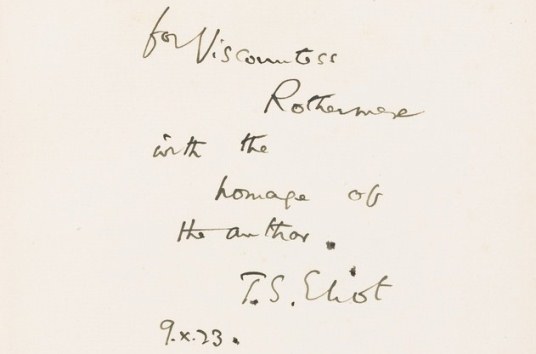 for Viscountess
Rothermere
with the
homage of
the author.
T. S. Eliot
9.x.23.